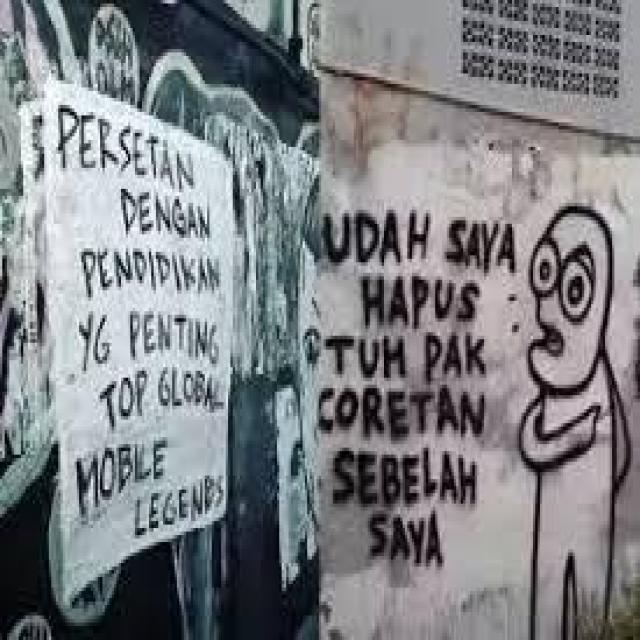 PERSETAN
DENGAN
PENDIDIKAN
YG PENTING
TOP GLOBAL
MOBILE
LEGENDS
UDAH SAYA
HAPUS
TUH PAK
CORETAN
SEBELAH
SAYA